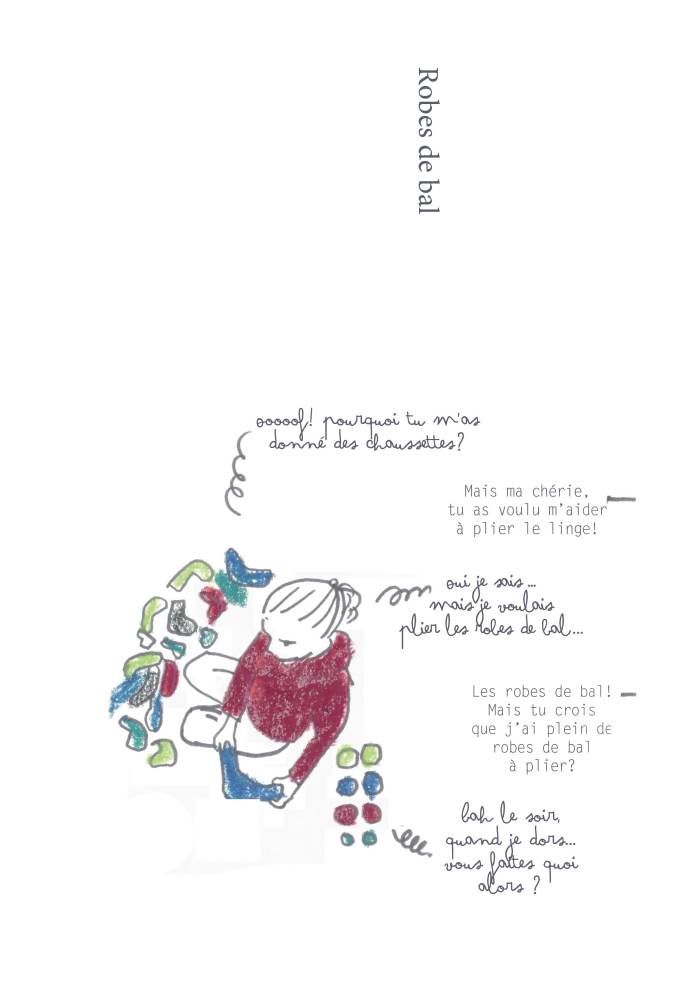 Robes de bal
ooooof! pourquoi tu m'as
donné des chaussettes?
Mais ma chérie,
tu as voulu m'aider
à plier le linge!
oui je sais...
mais je voulais
plier les robes de bal...
Les robes de bal!
Mais tu crois
que j'ai plein de
robes de bal
à plier?
bah le soir,
quand je dors...
vous faites quoi
alors ?